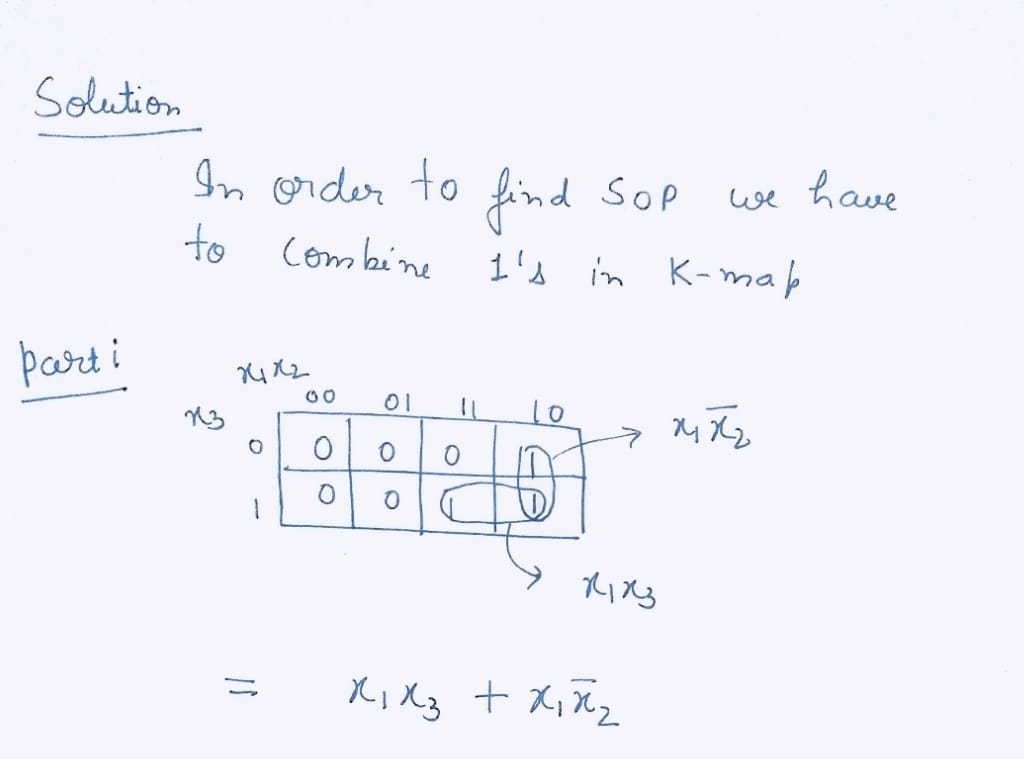 Solution
In order to find SOP we have
to combine 1's in K-map
part i
x₁x₂
00 01 11 10
x₃
0 0 0 0 1 x₁x̅₂
1 0 0 1 1
x₁x₃
= x₁x₃ + x₁x̅₂